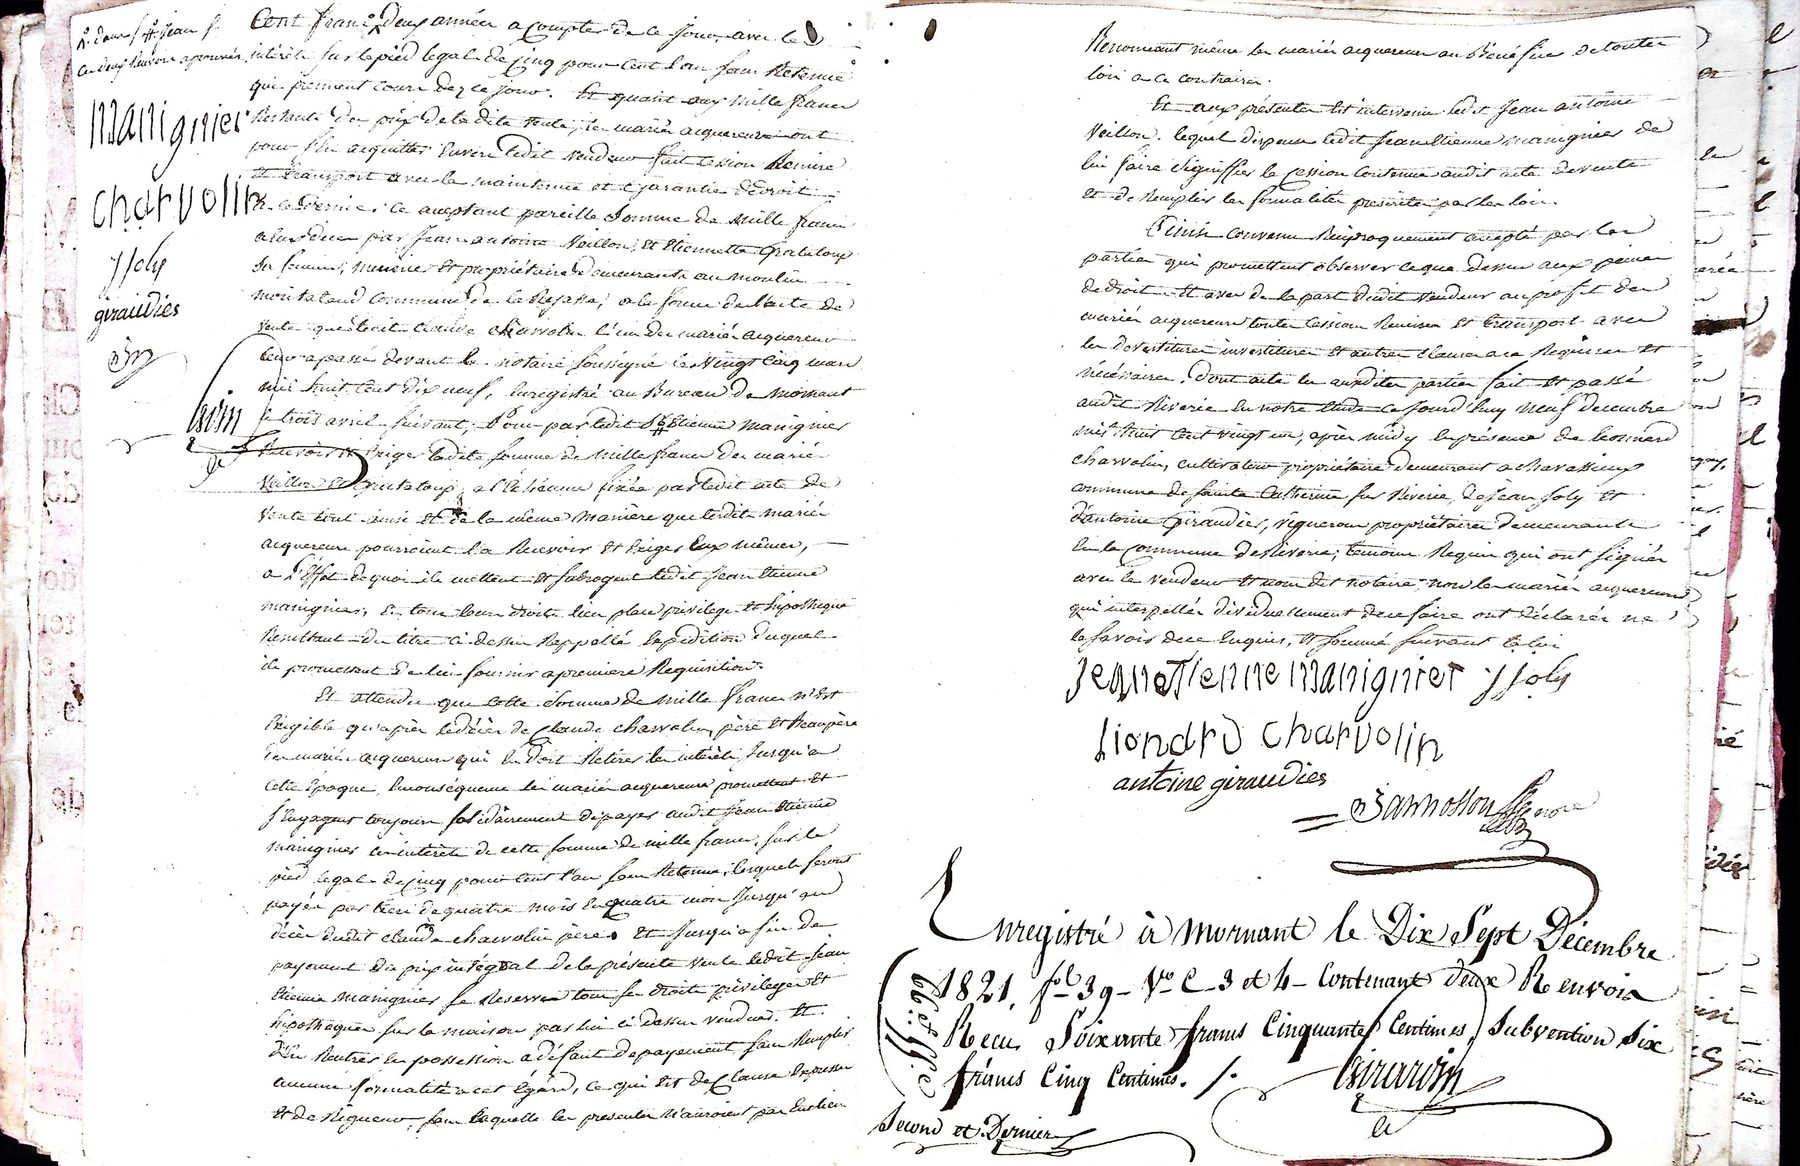 dans / # Jean /
Ces deux Renvois approuvés
manignier
charvolin
J Joly
giraudies
Cent francs, deux années a Compter de ce jour avec les
intérêts sur le pied legal de cinq pour cent l'an sans Retenue
qui prennent cours dez ce jour. Et quant aux mille francs
Restants du prix de la dite vente, les mariés acquereurs ont
pour s'en acquitter envers ledit vendeur fait cession Remise
et transport avec la maintenue et Garantie de droit
a ce dernier ce acceptant pareille somme de mille francs
a eux dues par Jean antoine Veillon, et Etiennette Grataloup
sa femme, meunier et propriétaires demeurants au moulin
montaland commune de la Rajasse, a la forme de l'acte de
vente que ledit claude charvolin l'un des mariés acquereurs
leur a passé devant le notaire soussigné le vingt cinq mars
mil huit cent dix neuf, enregistré au Bureau de mornant
le trois avril suivant, Pour par ledit # Etienne manignier
Recevoir et Exiger ladite somme de mille francs des mariés
Veillon et Grataloup, a l'échéance fixée par ledit acte de
vente tout ainsi et de la même manière que lesdits mariés
acquereurs pourroient la Recevoir et Exiger Eux mêmes,
a l'Effet de quoi ils mettent et subrogent ledit Jean Etienne
manignier, en tous leurs droits lieu place privilege et hipothèque
Resultant du titre ci dessus Rappellé l'expédition duquel
ils promettent de lui fournir a premiere Requisition.
Et attendu que cette somme de mille francs n'est
Exigible qu'après le décès de Claude charvolin père et Beaupère
des mariés acquereurs qui en doit Retirer les intérêts, Jusqu'a
cette époque, En conséquence les mariés acquereurs promettent et
s'Engagent toujours solidairement de payer audit Jean Etienne
manignier les intérêts de cette somme de mille francs, sur le
pied legal de Cinq pour Cent l'an sans Retenue, lesquels seront
payés par tiers de quatre mois en quatre mois Jusqu'au
décès dudit claude charvolin père. Et Jusqu'a fin de
payement du prix intégral de la présente vente ledit Jean
Etienne manignier se Reserve tous ses droits privileges et
hipothèques sur la maison par lui ci dessus vendue. Et
d'en Rentrer en possession a défaut de payement sans Remplir
aucune formalité a cet égard, ce qui est de Clause Expresse
et de Rigueur, sans laquelle les presentes n'auroient pas eu lieu
Renonceant même les mariés acquereurs au Bénéfice de toutes
lois a ce contraires.
Et aux présentes Est intervenu ledit Jean antoine
Veillon. lequel dispense ledit Jean Etienne manignier de
lui faire Signiffier la Cession contenue audit acte de vente
et de Remplir les formalités prescrites par les lois.
Ainsi convenu Reciproquement accepté par les
parties qui promettent observer ce que dessus aux peines
de droit. Et avec de la part dudit vendeur au profit des
mariés acquereurs toutes Cessions Remises et transport avec
les devestitures investitures et autres clauses a ce Requises et
nécéssaires. dont acte les susdites parties fait et passé
audit Riverie en notre Etude ce jourd'huy neuf decembre
mil huit cent vingt un, après midy en présence de Leonnard
charvolin, cultivateur propriétaire demeurant a chavassieux
commune de sainte Catherine sur Riverie, de Jean Joly et
d'antoine Giraudier, vignerons propriétaires demeurants
en la Commune de Riverie; temoins Requis qui ont signé
avec le vendeur et nous dit notaire, non les mariés acquereurs
qui interpellés dividuellement de ce faire ont déclaré ne
le savoir de ce Enquis, et sommé suivant la loi
Jeanetienne manignier J Joly
lionard charvolin
antoine giraudies
Enregistré à Mornant le Dix Sept Décembre
1821. f° 39 - V° C - 3 et 4 - Contenant deux Renvois
Reçu Soixante francs Cinquante Centimes, Subvention Six
francs Cinq Centimes. /.
66 f. 55 c
Second et Dernier